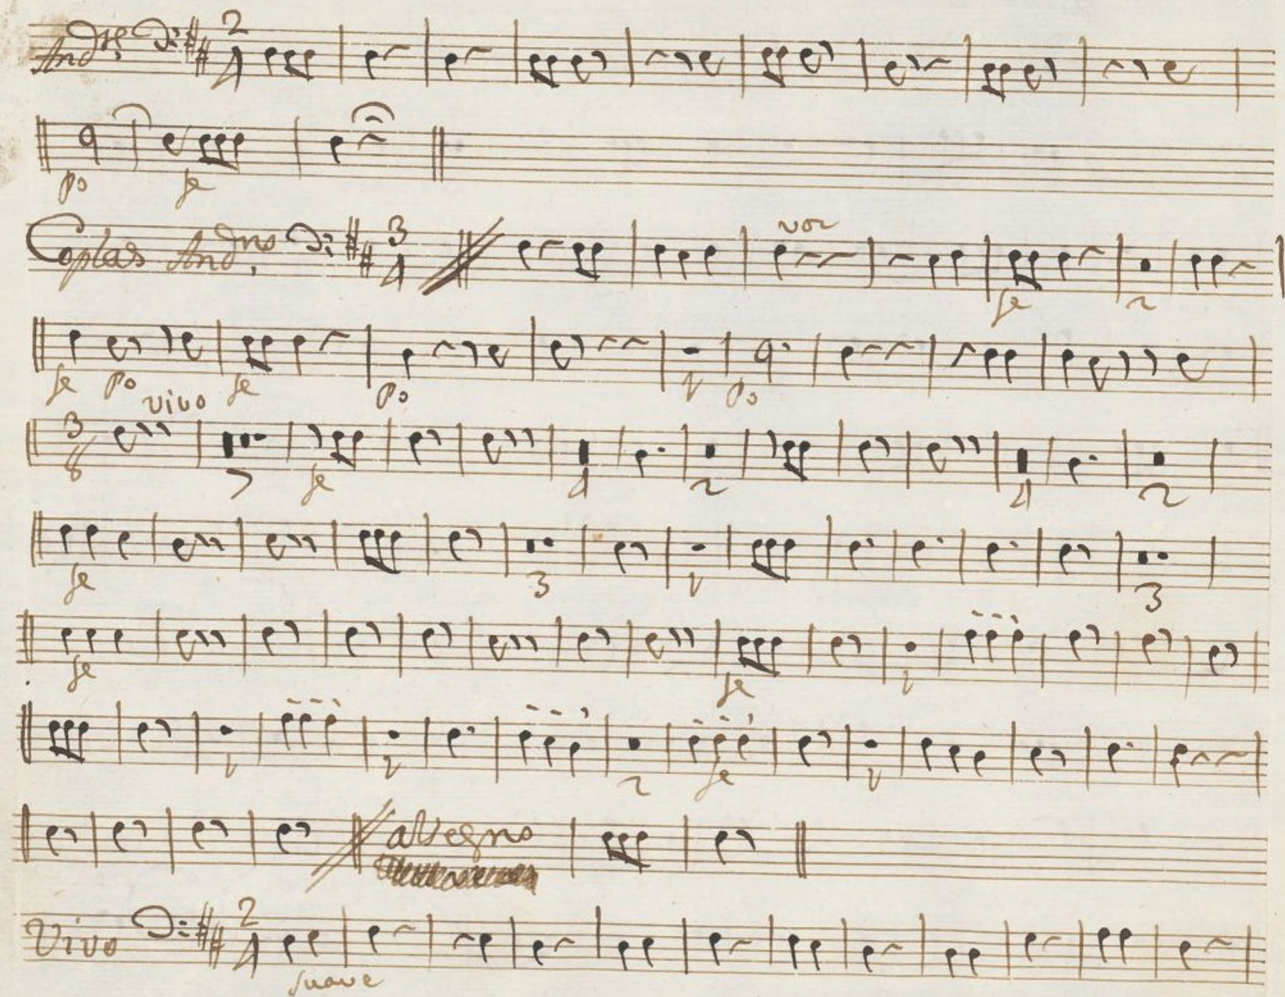 And.te 2 4
po fe
Coplas And.no 3 4 voz
fe 2
fe po fe Po 1 Po
vivo
3 8 7 fe 4 2 4 2
fe 3 1 3
fe fe 1
1 1 2 fe 1
al segno
Vivo 2 4
suave